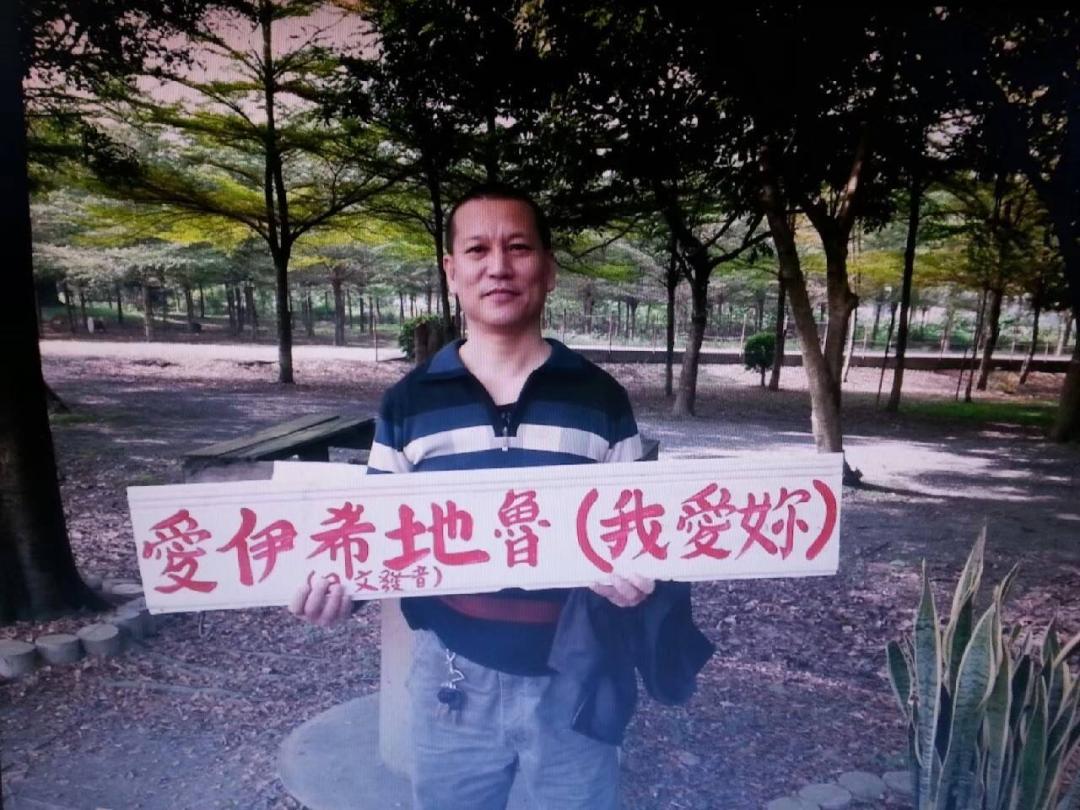 愛伊希地魯(我愛妳)
文發音)